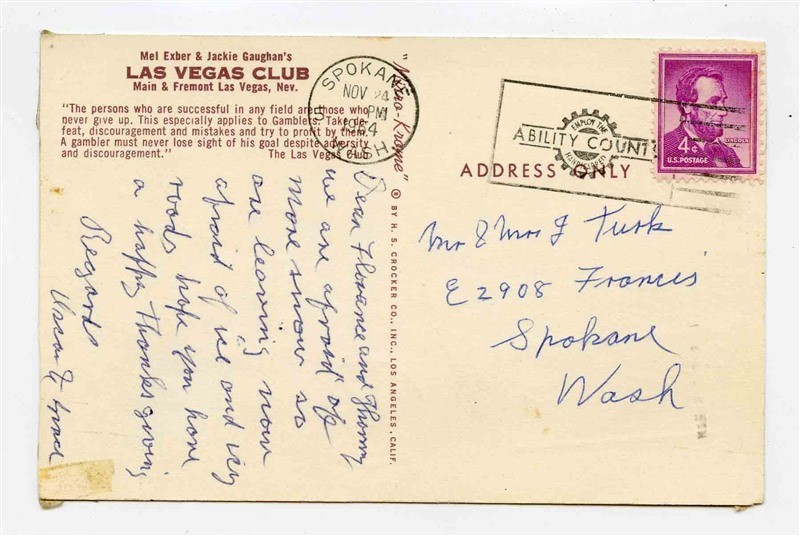 Mel Exber & Jackie Gaughan's
LAS VEGAS CLUB
Main & Fremont Las Vegas, Nev.
"The persons who are successful in any field are those who
never give up. This especially applies to Gamblers. Take de-
feat, discouragement and mistakes and try to profit by them.
A gambler must never lose sight of his goal despite adversity
and discouragement." The Las Vegas Club
Dear Florence and
we are afraid of
more snow so
are leaving now
afraid of ice and icy
roads hope you have
a happy thanksgiving
Regards
"Natura-Krome" ® BY H. S. CROCKER CO., INC., LOS ANGELES, CALIF.
SPOKANE
WASH.
NOV 24
PM
1964
EMPLOY THE
ABILITY COUNTS
HANDICAPPED
LINCOLN
4¢
U.S. POSTAGE
ADDRESS ONLY
Mr & Mrs J Turk
E 2908 Francis
Spokane
Wash